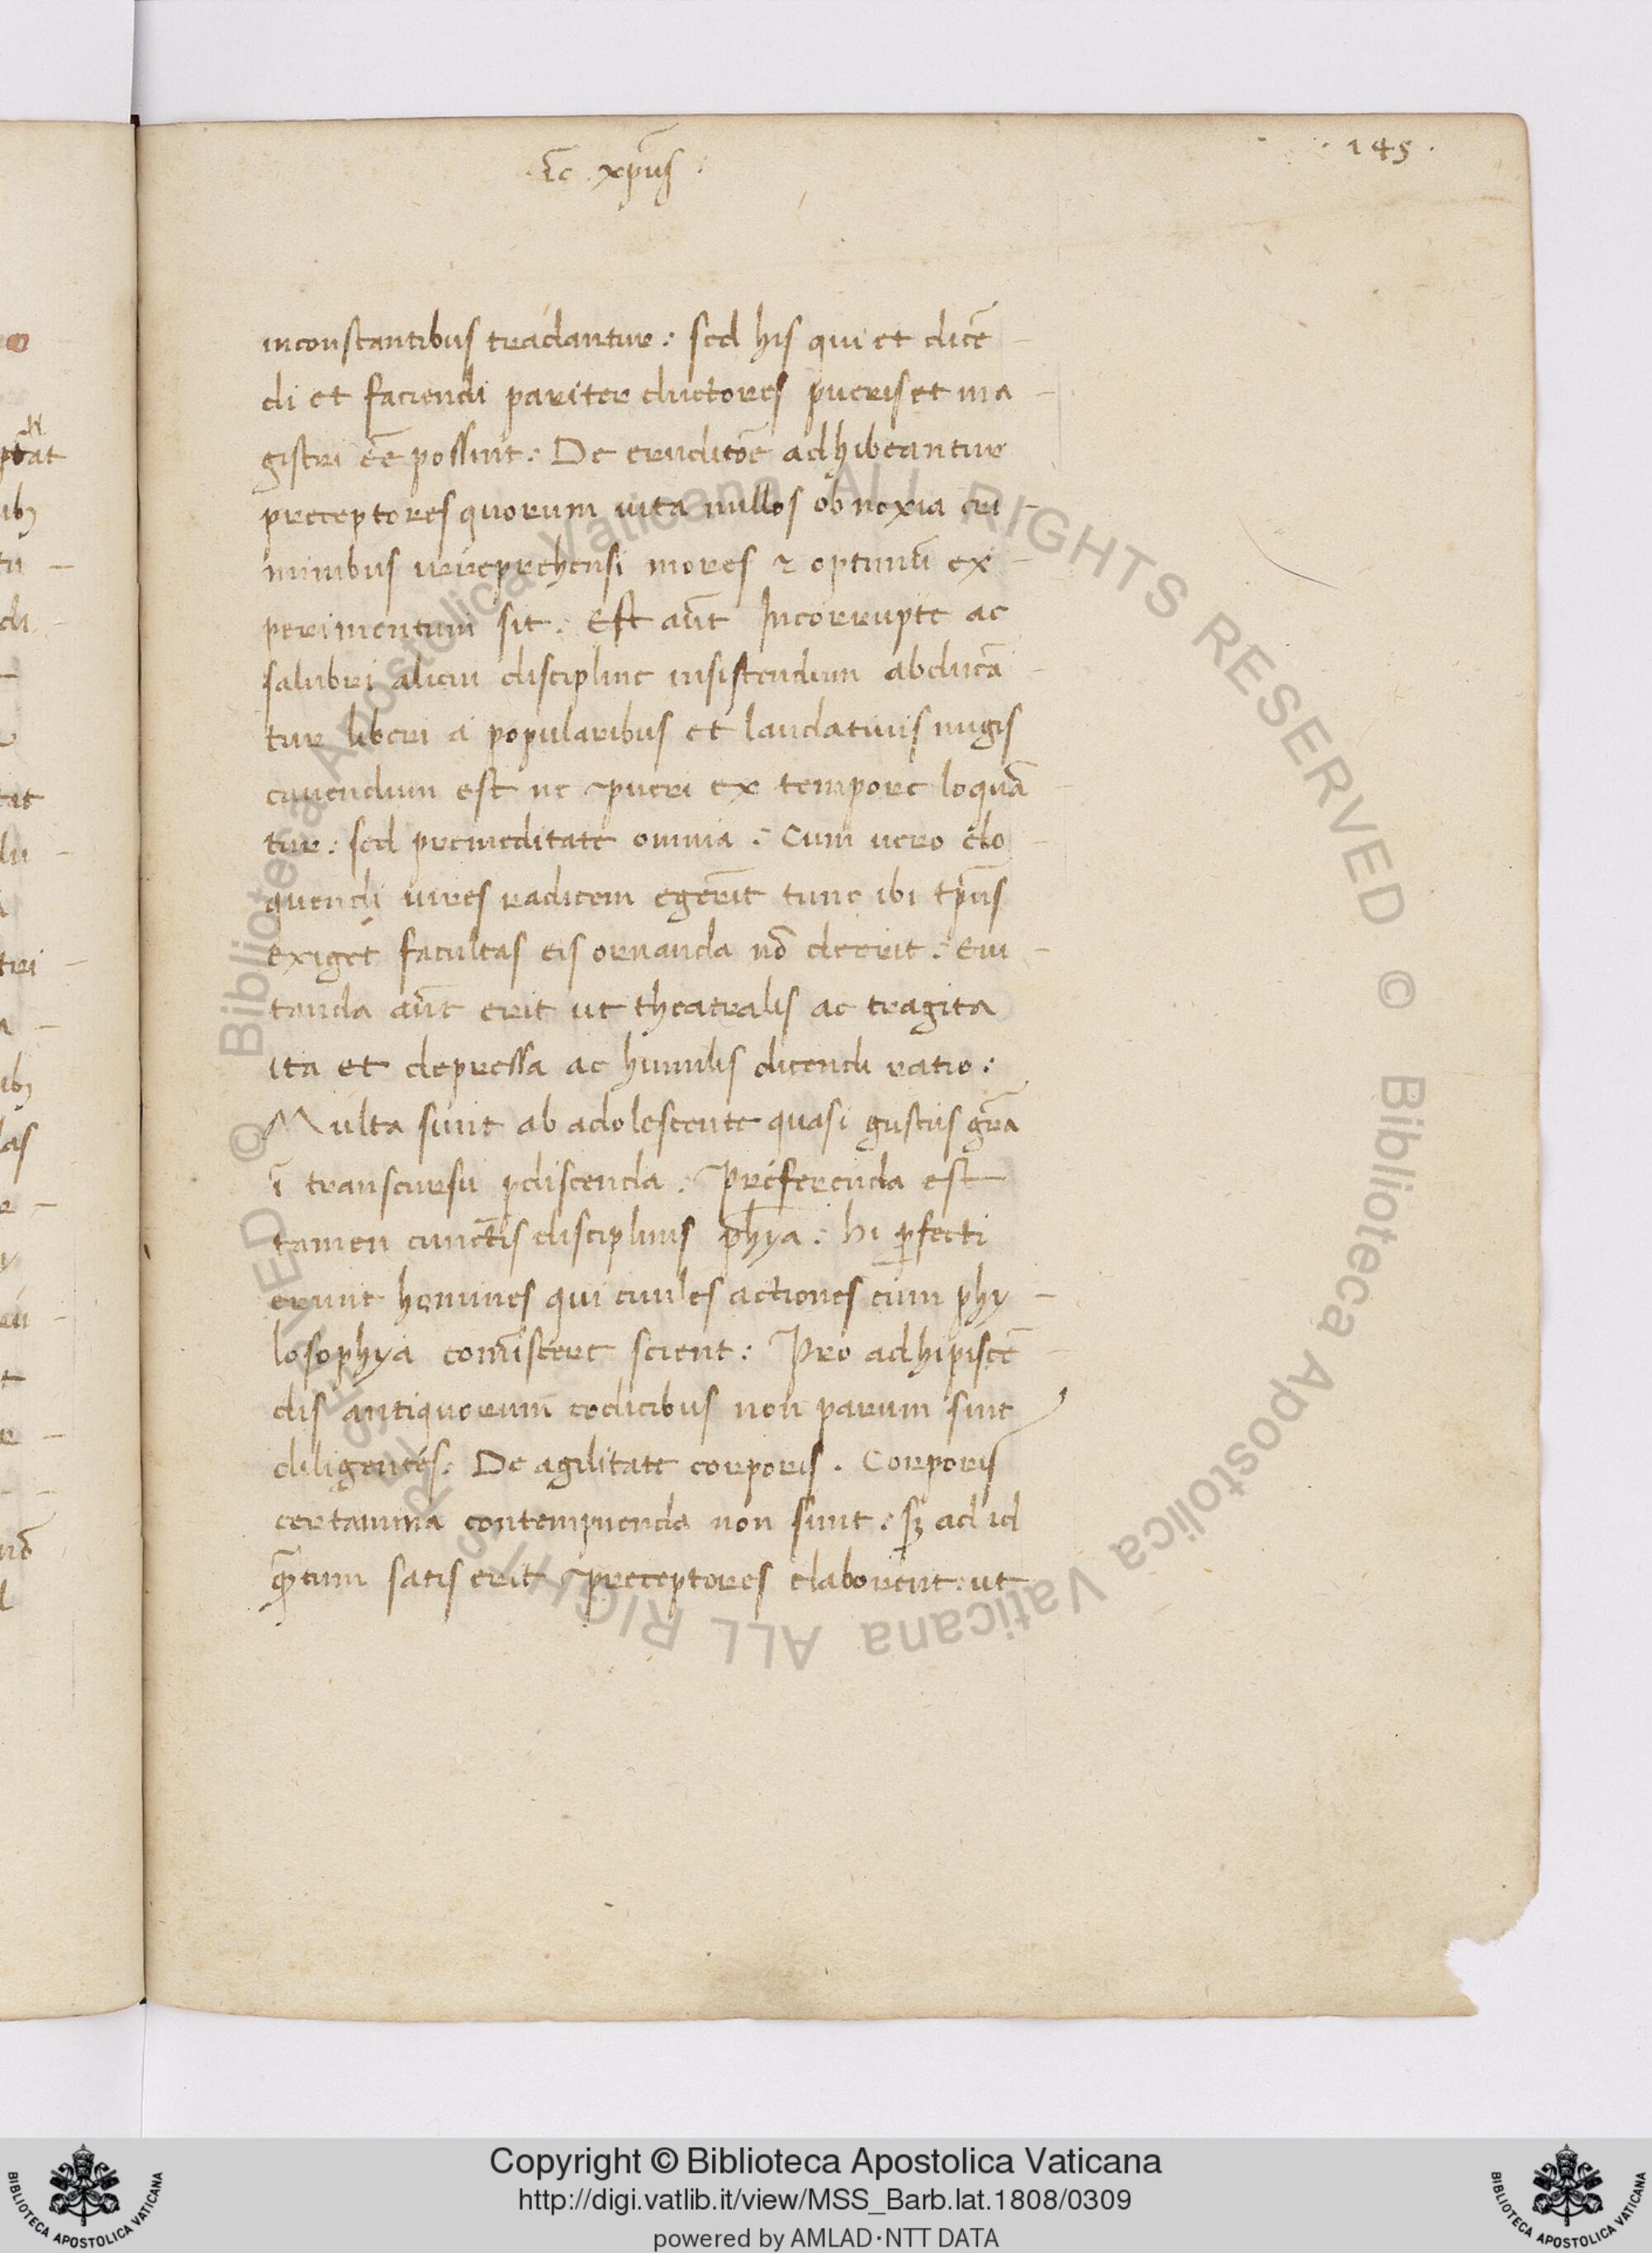 · īc · xp̄us ·
· 145 ·
inconstantibus tradantur : sed his qui et dicē
di et faciendi pariter ductores pueris et ma
gistri eē̄ possint : De eruditōe adhibeantur
preceptores quorum uita nullos obnoxia cri
minibus irreprehensi mores ⁊ optimū ex
perimentum sit : Est aūt Incorrupte ac
salubri alicui discipline insistendum abducā
tur liberi a popularibus et laudatiuis nugis
cauendum est ne pueri ex tempore loquā
tur : sed premeditate omnia : Cum uero elo
quendi uires radicem egerīt tunc ibi tp̄us
exiget facultas eis ornanda nō deerit : Eui
tanda aūt erit ut theatralis ac tragita
ita et depressa ac humilis dicendi ratio :
Multa sunt ab adolescente quasi gustus gr̄a
ī transcursu ꝑdiscenda : Preferenda est
tamen cunctis disciplinis ph̄ya : hi ꝑfecti
erunt homines qui ciuiles actiones cum phy
losophya comīscere scient : Pro adhipiscē
dis antiquorum codicibus non parum sint
diligentes : De agilitate corporis . Corporis
certamina contempnenda non sunt : sꝫ ad id
q̄ntum satis erit preceptores elaborent : ut
Copyright © Biblioteca Apostolica Vaticana
http://digi.vatlib.it/view/MSS_Barb.lat.1808/0309
powered by AMLAD·NTT DATA